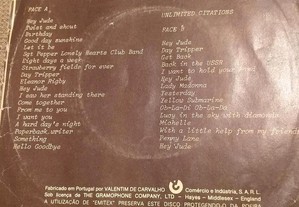 FACE A
Hey Jude
Twist and shout
Birthday
Good day sunshine
Let it be
Sgt Pepper Lonely Hearts Club Band
Eight days a week
Strawberry fields for ever
Day Tripper
Eleanor Rigby
Hey Jude
I saw her standing there
Come together
From me to you
I want you
A hard day's night
Paperback writer
Something
Hello Goodbye
UNLIMITED CITATIONS
FACE B
Hey Jude
Day Tripper
Get Back
Back in the USSR
I want to hold your
Hey Jude
Lady Madonna
Yesterday
Yellow Submarine
Ob-La-Di Ob-La-Da
Lucy in the sky with diamonds
Michelle
With a little help from my friends
Penny Lane
Hey Jude
Fabricado em Portugal por VALENTIM DE CARVALHO Comércio e Indústria, S.A.R.L.
Sob licença de THE GRAMOPHONE COMPANY, LTD — Hayes - Middlesex - England
A UTILIZAÇÃO DE "EMITEX" PRESERVA ESTE DISCO PROTEGENDO-O DA POEIRA